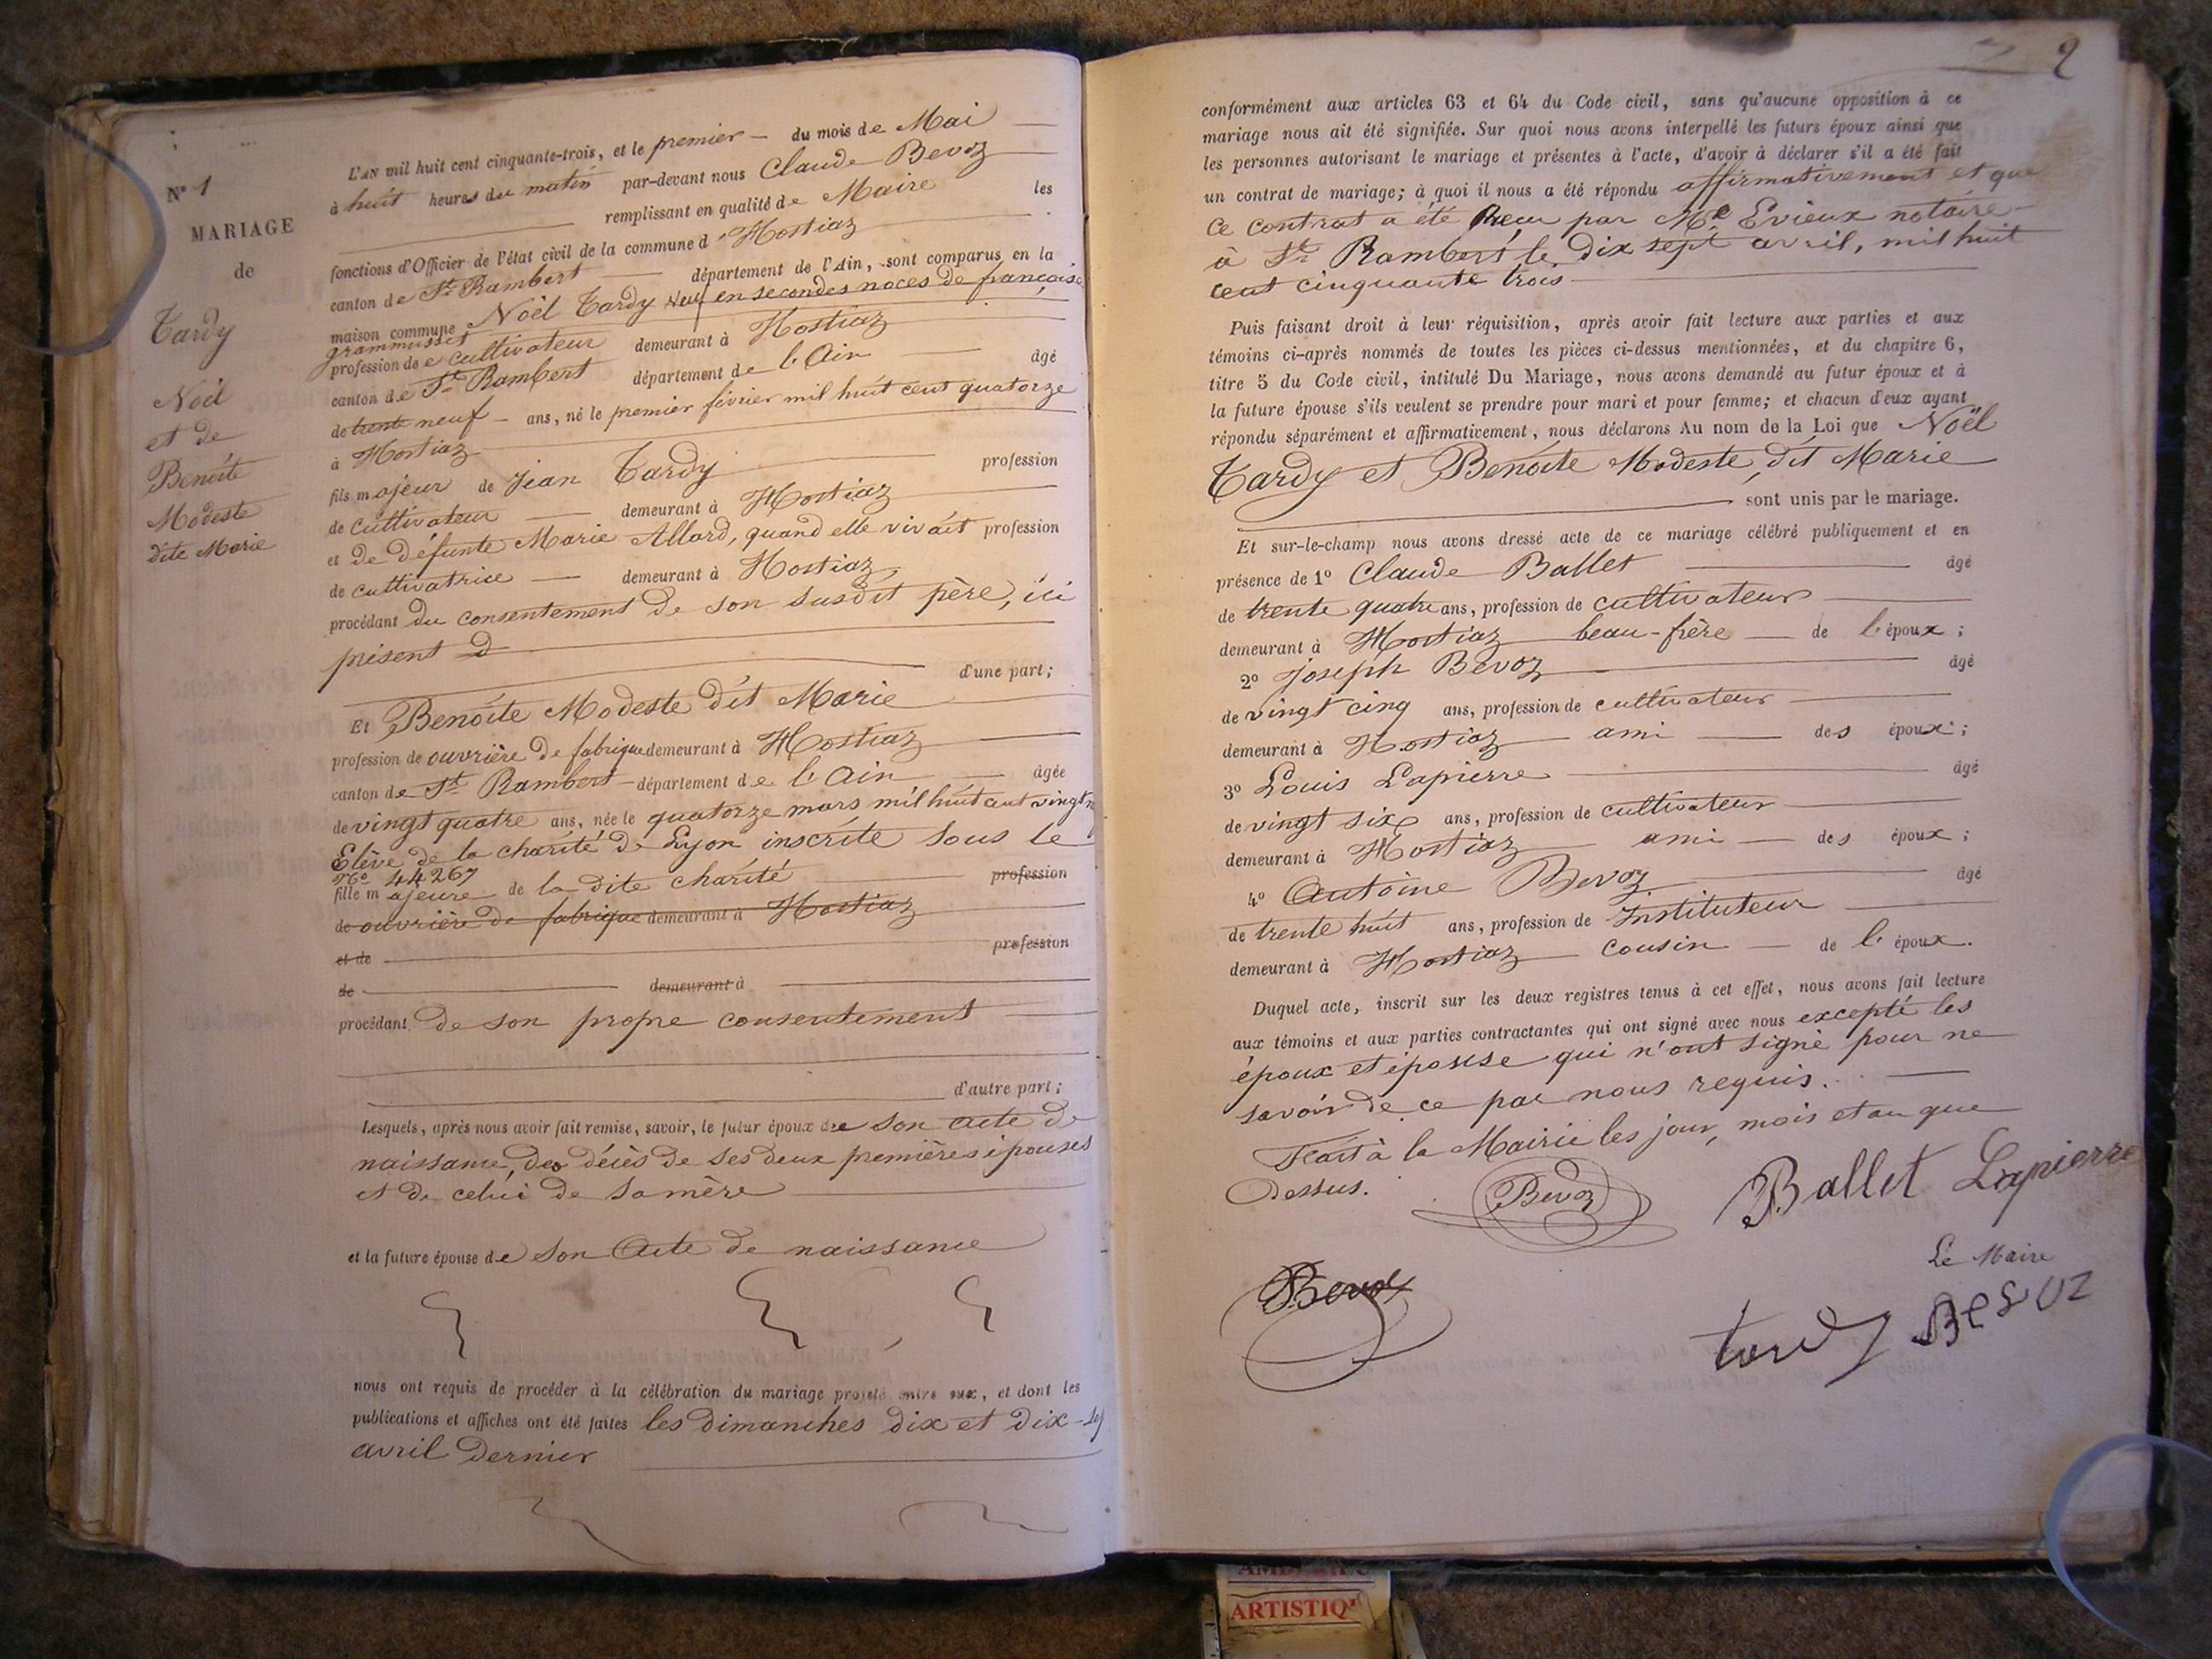 N° 1
MARIAGE
de
Tardy
Noël
et de
Benoîte
Modeste
dite Marie
L'AN mil huit cent cinquante-trois, et le premier du mois de Mai
à huit heures du matin par-devant nous Claude Bevoz
remplissant en qualité de Maire les
fonctions d'Officier de l'état civil de la commune d'Hostiaz
canton de St Rambert département de l'Ain, sont comparus en la
maison commune Noël Tardy veuf en secondes noces de françoise
grammusset
profession de cultivateur demeurant à Hostiaz
canton de St Rambert département de l'Ain âgé
de trente neuf ans, né le premier février mil huit cent quatorze
à Hostiaz
fils majeur de Jean Tardy profession
de cultivateur demeurant à Hostiaz
et de défunte Marie Allard, quand elle vivait profession
de cultivatrice demeurant à Hostiaz,
procédant du consentement de son susdit père, ici
présent
d'une part;
Et Benoîte Modeste dit Marie
profession de ouvrière de fabrique demeurant à Hostiaz
canton de St Rambert département de l'Ain âgée
de vingt quatre ans, née le quatorze mars mil huit cent vingt
Elève de la charité de Lyon inscrite sous le
N° 44267
fille majeure de la dite charité profession
de ouvrière de fabrique demeurant à Hostiaz
et de profession
de demeurant à
procédant de son propre consentement
d'autre part;
Lesquels, après nous avoir fait remise, savoir, le futur époux de son acte de
naissance, des décès de ses deux premières épouses
et de celui de sa mère
et la future épouse de son Acte de naissance
nous ont requis de procéder à la célébration du mariage projeté entre eux, et dont les
publications et affiches ont été faites les dimanches dix et dix-sep
avril dernier
2
conformément aux articles 63 et 64 du Code civil, sans qu'aucune opposition à ce
mariage nous ait été signifiée. Sur quoi nous avons interpellé les futurs époux ainsi que
les personnes autorisant le mariage et présentes à l'acte, d'avoir à déclarer s'il a été fait
un contrat de mariage; à quoi il nous a été répondu affirmativement et que
ce contrat a été Reçu par Me Evieux notaire
à St Rambert le dix sept avril, mil huit
cent cinquante trois
Puis faisant droit à leur réquisition, après avoir fait lecture aux parties et aux
témoins ci-après nommés de toutes les pièces ci-dessus mentionnées, et du chapitre 6,
titre 5 du Code civil, intitulé Du Mariage, nous avons demandé au futur époux et à
la future épouse s'ils veulent se prendre pour mari et pour femme; et chacun d'eux ayant
répondu séparément et affirmativement, nous déclarons Au nom de la Loi que Noël
Tardy et Benoîte Modeste, dit Marie
sont unis par le mariage.
Et sur-le-champ nous avons dressé acte de ce mariage célébré publiquement et en
présence de 1° Claude Ballet âgé
de trente quatre ans, profession de cultivateur
demeurant à Hostiaz beau-frère de l'époux;
2° Joseph Bevoz âgé
de vingt cinq ans, profession de cultivateur
demeurant à Hostiaz ami des époux;
3° Louis Lapierre âgé
de vingt six ans, profession de cultivateur
demeurant à Hostiaz ami des époux;
4° Antoine Bevoz âgé
de trente huit ans, profession de Instituteur
demeurant à Hostiaz cousin de l'époux.
Duquel acte, inscrit sur les deux registres tenus à cet effet, nous avons fait lecture
aux témoins et aux parties contractantes qui ont signé avec nous excepté les
époux et épouse qui n'ont signé pour ne
savoir de ce par nous requis.
Fait à la Mairie les jour, mois et an que
dessus.
Bevoz Ballet Lapierre
Le Maire
Bevoz tardy Bevoz
ARTISTIQ